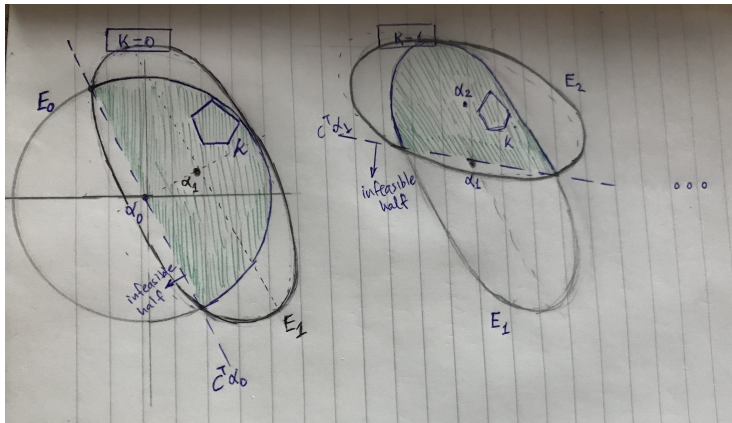 K=0
E₀
K
α₁
α₀
infeasible
half
E₁
Cᵀα₀
K=1
E₂
α₂
K
Cᵀα₁
α₁
infeasible
half
E₁